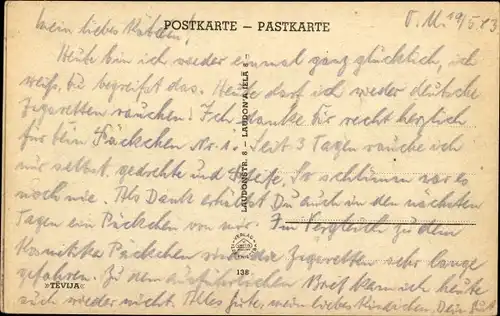 POSTKARTE – PASTKARTE
O. U. 19/5. 43
Mein liebes
Heute bin ich wieder einmal ganz glücklich, ich
weiß, Du begreifst das. Heute darf ich wieder deutsche
Zigaretten rauchen! Ich danke Dir recht herzlich
für Dein Päckchen Nr. 1. Seit 3 Tagen rauche ich
nur selbst gedrehte und Pfeife. So schlimm war es
noch nie. Als Dank erhältst Du auch in den nächsten
Tagen ein Päckchen von mir. Im Vergleich zu dem
Päckchen sind die Zigaretten sehr lange
gefahren. Zu dem ausführlichen Brief kam ich heute
auch wieder nicht. Alles Gute, mein liebes Dein
LAUDONSTR. 8 – LAUDON'A IELĀ 8
138
»TĒVIJA«